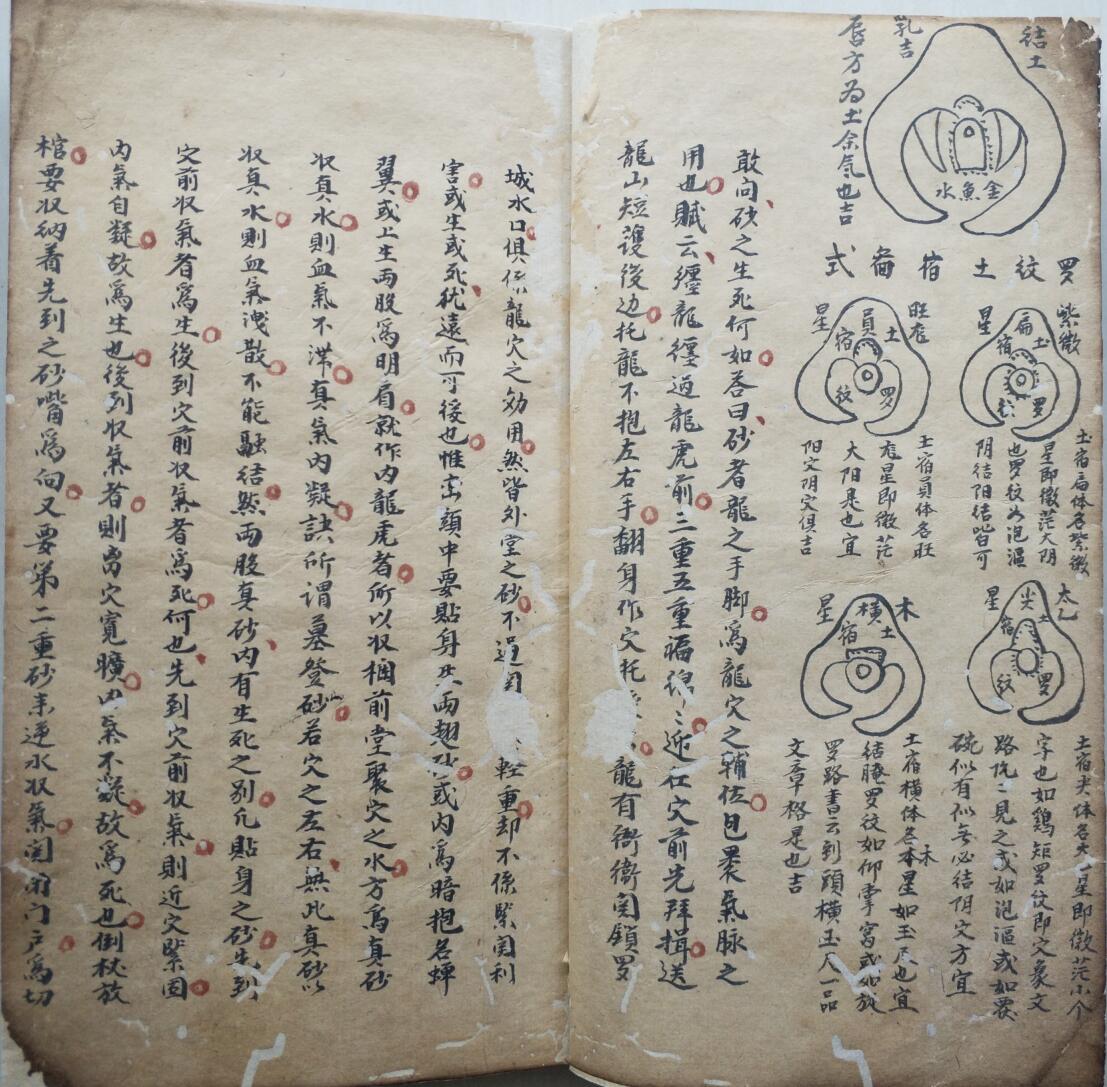 結土
乳吉
唇方為土余氣也吉
水魚金
罗纹土宿畨式
紫微
星
扁土
宿
罗
旺龙
星
員土
宿
纹
罗
土宿扁体名紫微
星即微茫大阴
也罗纹如泡漚
阴結阳結皆可
土宿員体各旺
龙星即微茫
大阳是也宜
阳穴阴穴俱吉
太乙
星
尖土
宿
纹
罗
木
星
横土
宿
土宿尖体名太一星即微茫小个
字也如鷄矩罗纹即穴象文
路仿二見之或如泡漚或如
碗似有似無必結阴穴方宜
土宿横体名木星如玉尺也宜
結罗纹如仰掌窩或如旋
罗路書云到頭横玉尺一品
文章格是也吉
敢问砂之生死何如答曰砂者龍之手脚為龍穴之輔佐包裹氣脉之
用也賦云纏龍纏過龍虎前三重五重福綿二近在穴前先拜揖送
龍山短護後边托龍不抱左右手翻身作穴托龍有衛衛関鎖罗
城水口俱係龍穴之効用然皆外堂之砂不過関輕重却不係緊関利
害或生或死犹遠而可後也惟巒頭中要貼身生两翅砂或内為暗抱若蟬
翼或上生两股為明肩就作内龍虎者所以収攔前堂聚穴之水方為真砂
収真水則血氣不滯真氣内凝訣所謂墓登砂若穴之左右無此真砂以
収真水則血氣洩散不能融結然两股真砂内有生死之别凢貼身之砂先到
穴前収氣者為生後到穴前収氣者為死何也先到穴前収氣則近穴緊固
内氣自凝故為生也後到収氣者則當穴寬曠内氣不凝故為死也倒杖放
棺要収納着先到之砂嘴為向又要第二重砂来逆水収氣関閉门戸為切